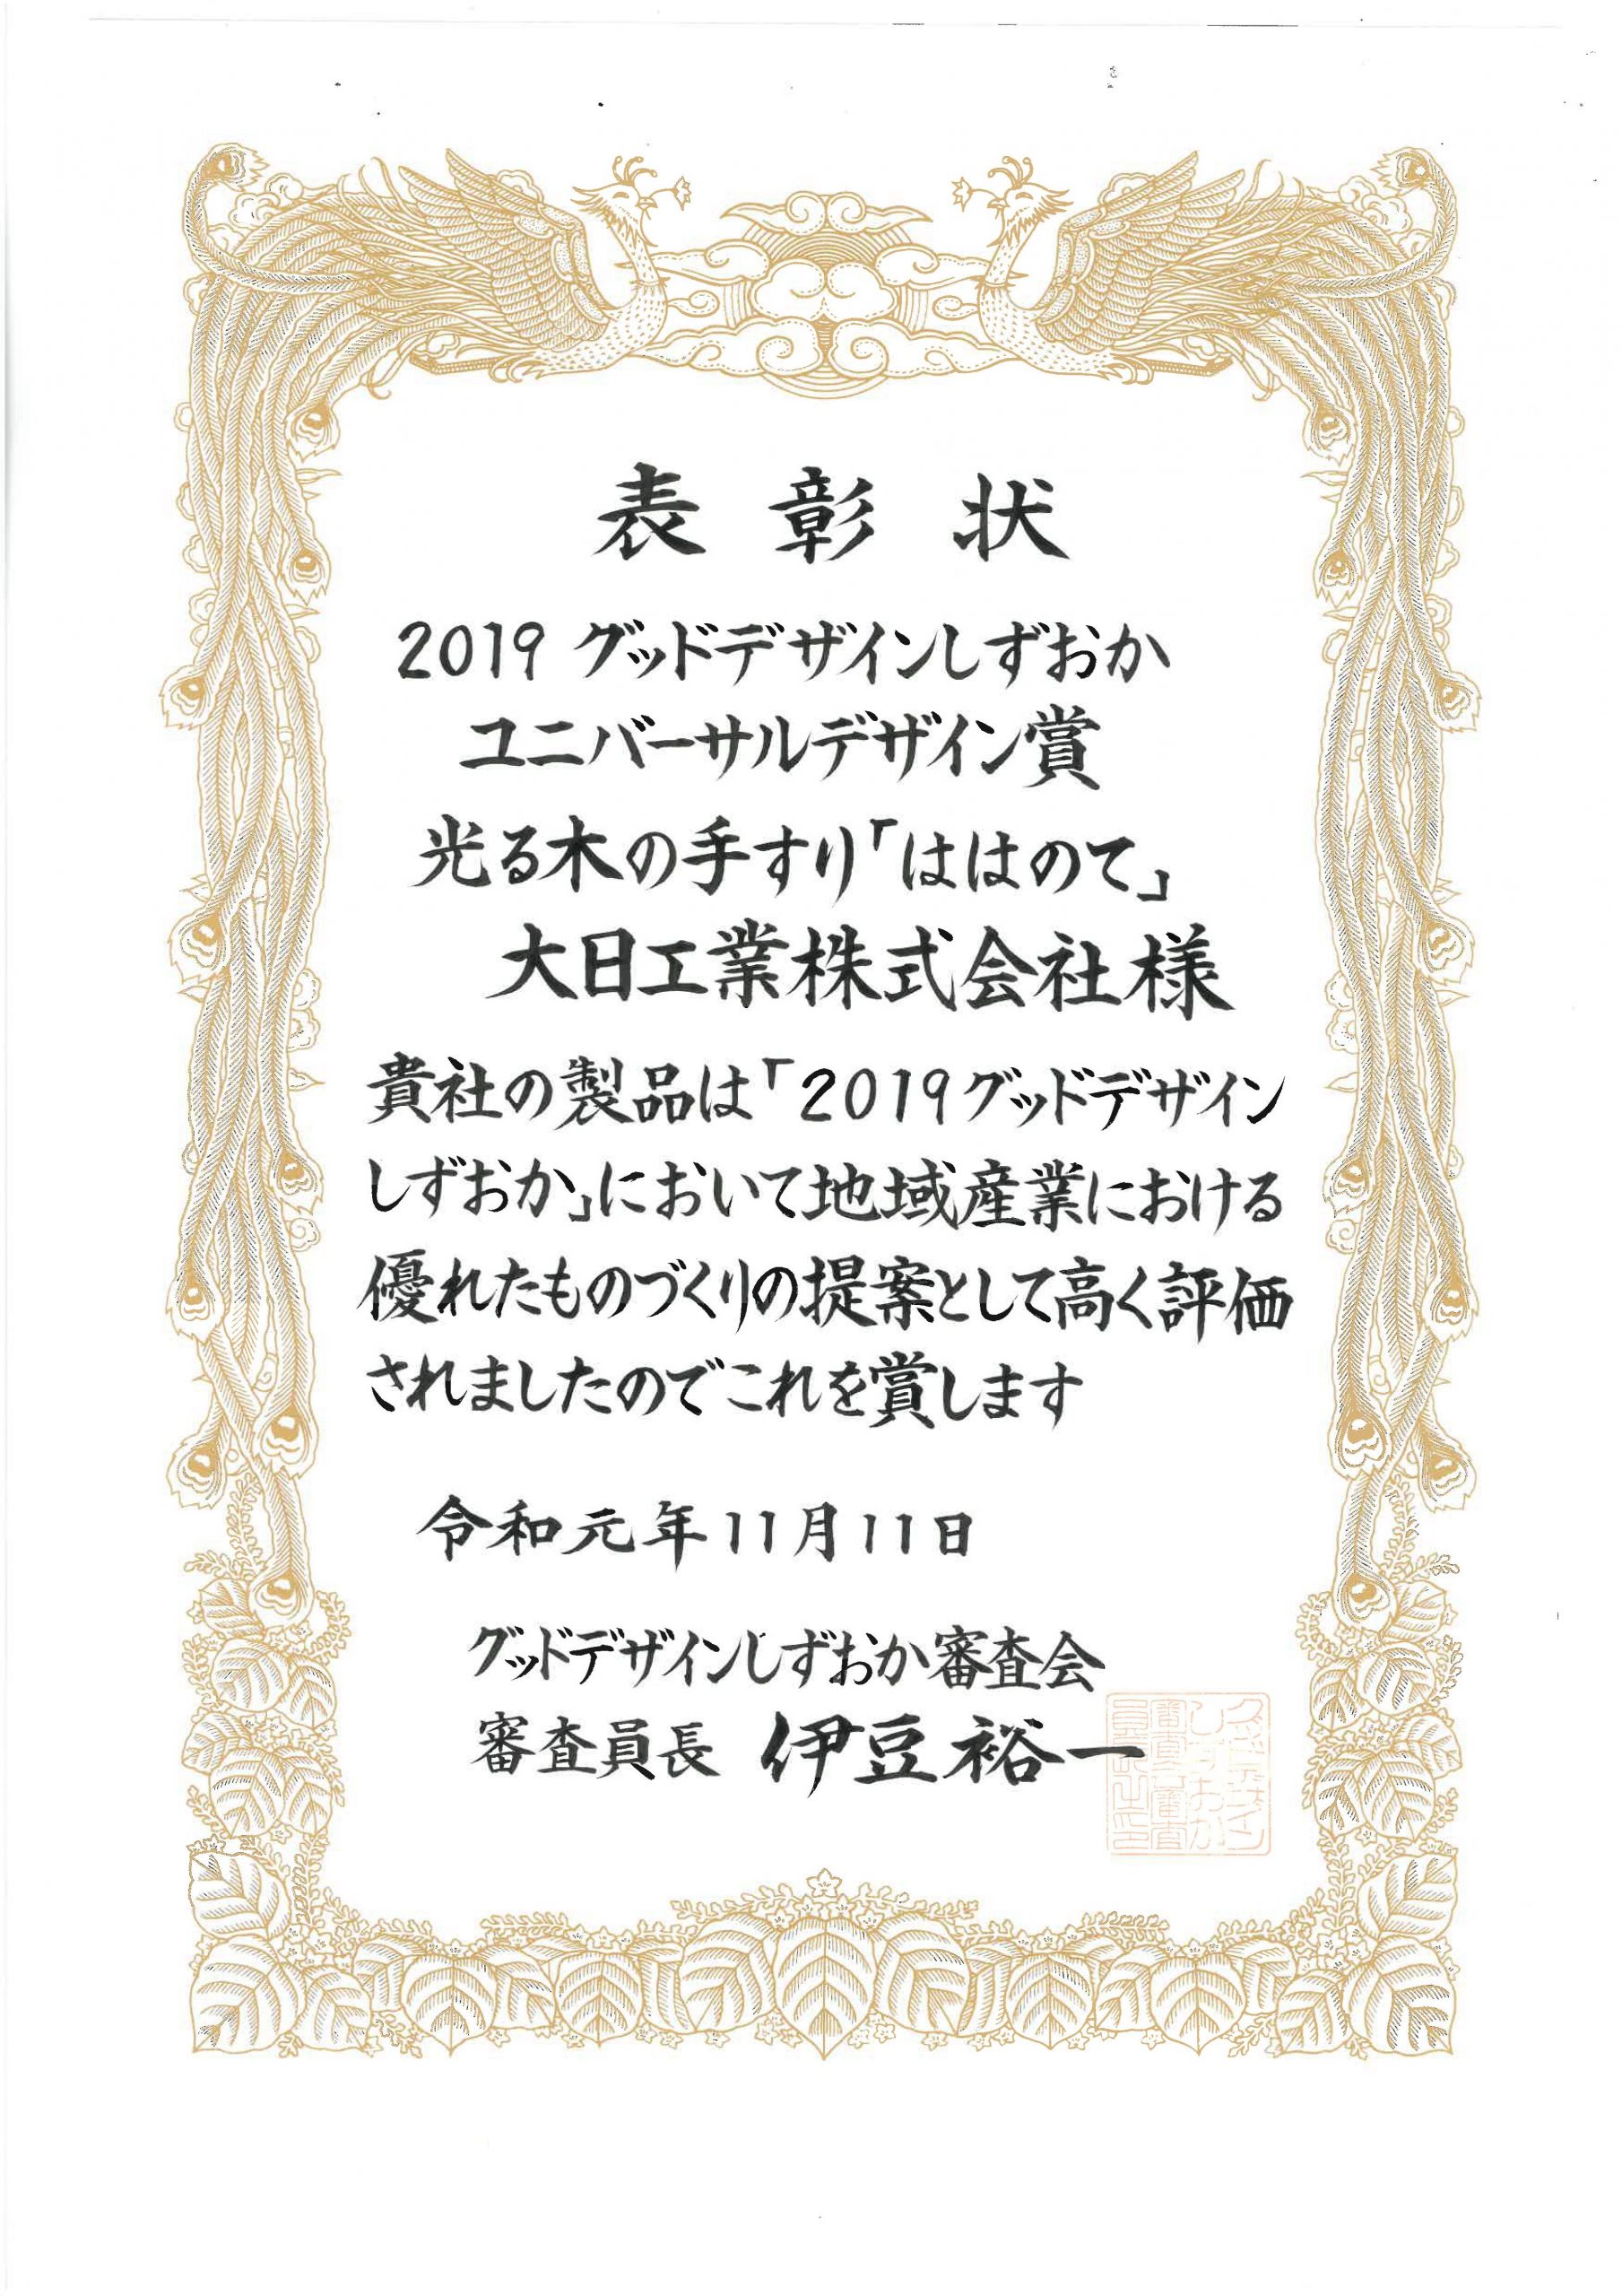 表彰状
2019 グッドデザインしずおか
ユニバーサルデザイン賞
光る木の手すり「ははのて」
大日工業株式会社様
貴社の製品は「2019グッドデザイン
しずおか」において地域産業における
優れたものづくりの提案として高く評価
されましたのでこれを賞します
令和元年11月11日
グッドデザインしずおか審査会
審査員長 伊豆裕一